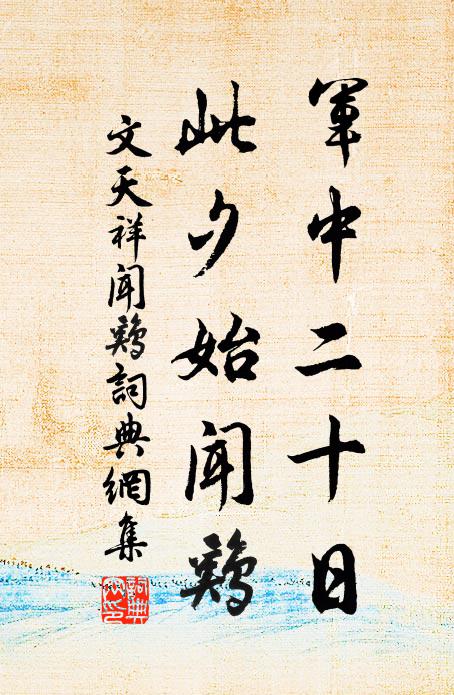 軍中二十日
此夕始聞鷄
文天祥聞鷄詞典網集